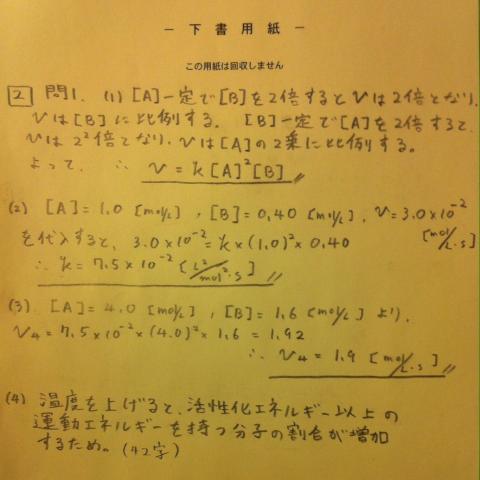 － 下 書 用 紙 －
この用紙は回収しません
[2] 問1. (1) [A]一定で[B]を2倍するとvは2倍となり、
vは[B]に比例する。 [B]一定で[A]を2倍すると、
vは2²倍となり、vは[A]の2乗に比例する。
よって、∴ v = k[A]²[B]
(2) [A]=1.0 [mol/L], [B]=0.40 [mol/L], v=3.0×10⁻² [mol/L·s]
を代入すると、3.0×10⁻²=k×(1.0)²×0.40
∴ k = 7.5×10⁻² [L²/mol²·s]
(3) [A]=4.0 [mol/L], [B]=1.6 [mol/L] より、
v₄=7.5×10⁻²×(4.0)²×1.6=1.92
∴ v₄=1.9 [mol/L·s]
(4) 温度を上げると、活性化エネルギー以上の
運動エネルギーを持つ分子の割合が増加
するため。(42字)